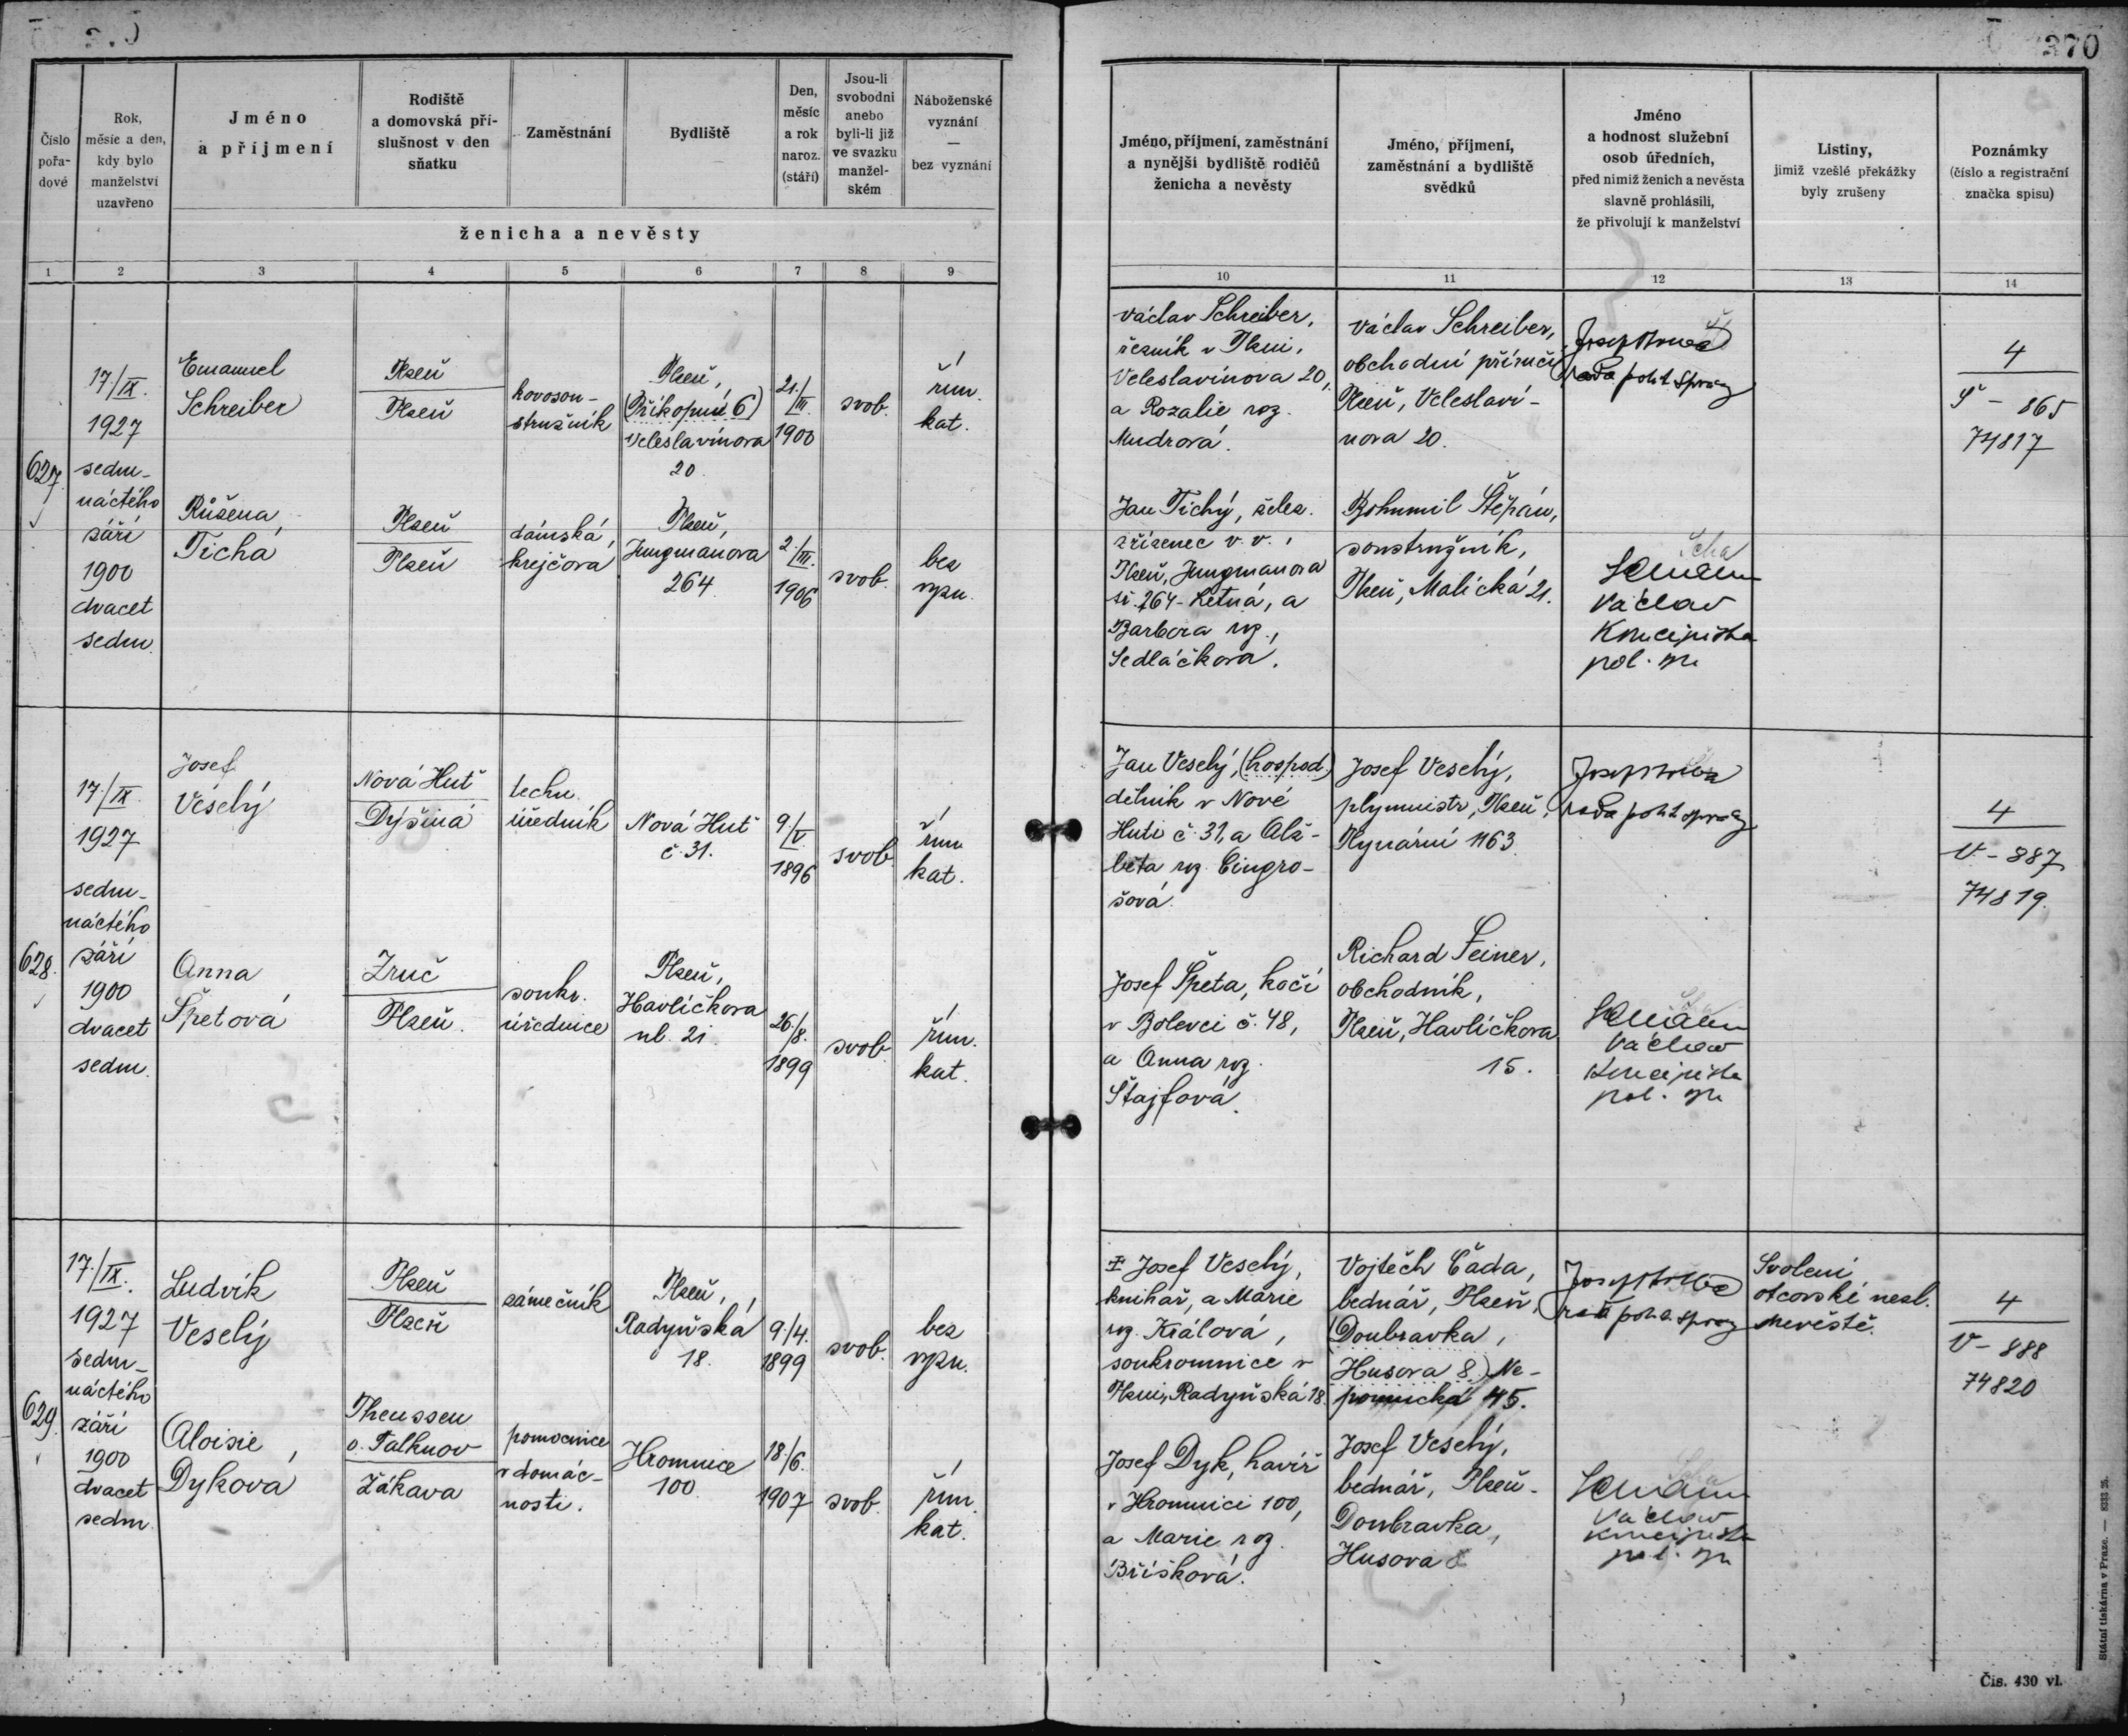 370
Číslo pořa- dové
Rok, měsíc a den, kdy bylo manželství uzavřeno
Jméno a příjmení
Rodiště a domovská pří- slušnost v den sňatku
Zaměstnání
Bydliště
Den, měsíc a rok naroz. (stáří)
Jsou-li svobodni anebo byli-li již ve svazku manžel- ském
Náboženské vyznání — bez vyznání
ženicha a nevěsty
Jméno, příjmení, zaměstnání a nynější bydliště rodičů ženicha a nevěsty
Jméno, příjmení, zaměstnání a bydliště svědků
Jméno a hodnost služební osob úředních, před nimiž ženich a nevěsta slavně prohlásili, že přivolují k manželství
Listiny, jimiž vzešlé překážky byly zrušeny
Poznámky (číslo a registrační značka spisu)
1 2 3 4 5 6 7 8 9 10 11 12 13 14
627.
17./IX.
1927
sedm-
náctého
září
1900
dvacet
sedm.
Emanuel
Schreiber
Plzeň
Plzeň
kovosou-
stružník
Plzeň,
(Příkopní 6)
Veleslavínova
20.
21./
III.
1900
svob.
řím.
kat.
Růžena
Tichá
Plzeň
Plzeň
dámská
krejčová
Plzeň,
Jungmanova
264.
2./
III.
1906
svob.
bez
vyzn.
Václav Schreiber,
řezník v Plzni,
Veleslavínova 20,
a Rozalie roz.
Mudrová.
Jan Tichý, želez.
zřízenec v. v.,
Plzeň, Jungmanova
či. 264 - Letná, a
Barbora roz.
Sedláčková.
Václav Schreiber,
obchodní příručí
Plzeň, Veleslaví-
nova 20.
Bohumil Štěpán,
soustružník,
Plzeň, Malická 21.
rada polit. správy
Václav
Koncipista
pol. spr.
4
Š - 865
74817
628.
17./IX.
1927
sedm-
náctého
září
1900
dvacet
sedm.
Josef
Veselý
Nová Huť
Dýšina
techn.
úředník
Nová Huť
č. 31.
9/
V.
1896
svob.
řím.
kat.
Anna
Špetová
Zruč
Plzeň.
soukr.
úřednice
Plzeň,
Havlíčkova
ul. 21.
26./
8.
1899
svob.
řím.
kat.
Jan Veselý, (hospod.)
dělník v Nové
Huti č. 31, a Alž-
běta roz. Cingro-
šová.
Josef Špeta, kočí
v Bolevci č. 48,
a Anna roz.
Štajfová.
Josef Veselý,
plynmistr, Plzeň,
Plynární 1163.
Richard Feiner,
obchodník,
Plzeň, Havlíčkova
15.
rada polit. správy
Václav
Koncipista
pol. spr.
4
V - 887
74819.
629.
17./IX.
1927
sedm-
náctého
září
1900
dvacet
sedm.
Ludvík
Veselý
Plzeň
Plzeň
zámečník
Plzeň,
Radyňská
18.
9./4.
1899
svob.
bez
vyzn.
Aloisie
Dyková
Theussen
o. Falknov
Žákava
pomocnice
v domác-
nosti.
Hromnice
100.
18/6.
1907
svob.
řím.
kat.
Josef Veselý,
knihař, a Marie
roz. Králová,
soukromnice v
Plzni, Radyňská 18.
Josef Dyk, havíř
v Hromnici 100,
a Marie roz.
Bříšková.
Vojtěch Čada,
bednář, Plzeň,
(Doubravka,
Husova 8) Ne-
pomucká 45.
Josef Veselý,
bednář, Plzeň-
Doubravka,
Husova 8
rada polit. správy
Václav
Koncipista
pol. spr.
Svolení
otcovské nezl.
nevěstě.
4
V - 888
74820
Státní tiskárna v Praze. — 8333 25.
Čís. 430 vl.